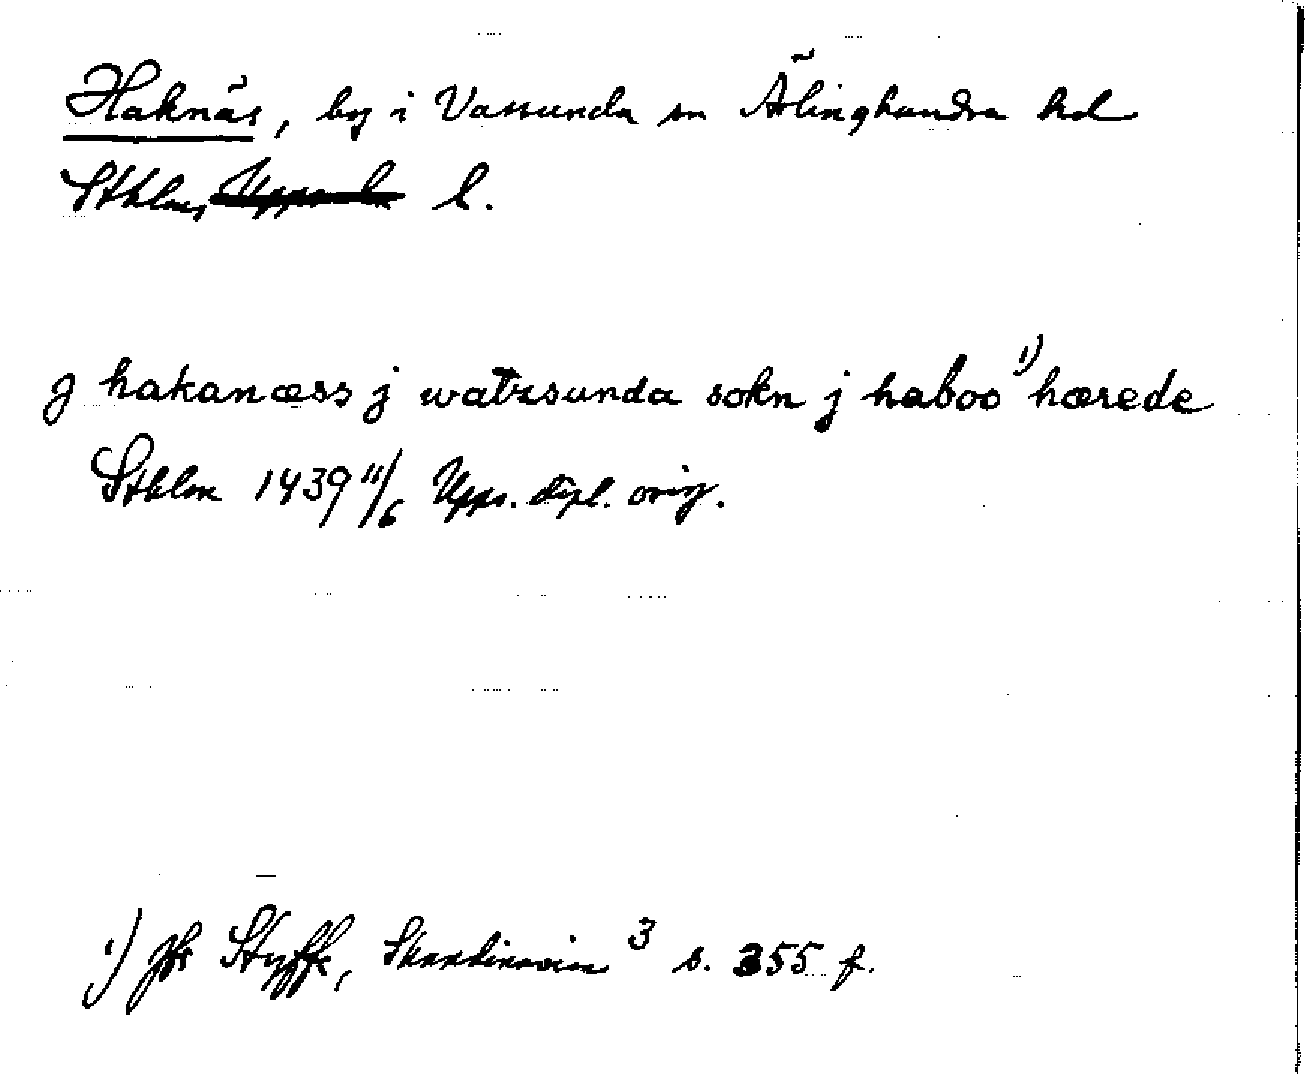 Haknäs, by i Vassunda sn Ärlinghundra hd
Sthlms Uppsala l.
J hakanæss j watzsunda sokn j haboo ¹) hærede
Sthlm 1439 11/6 Upps. dipl. orig.
1) Jfr Styffe, Skandinavien ³ s. 355 f.